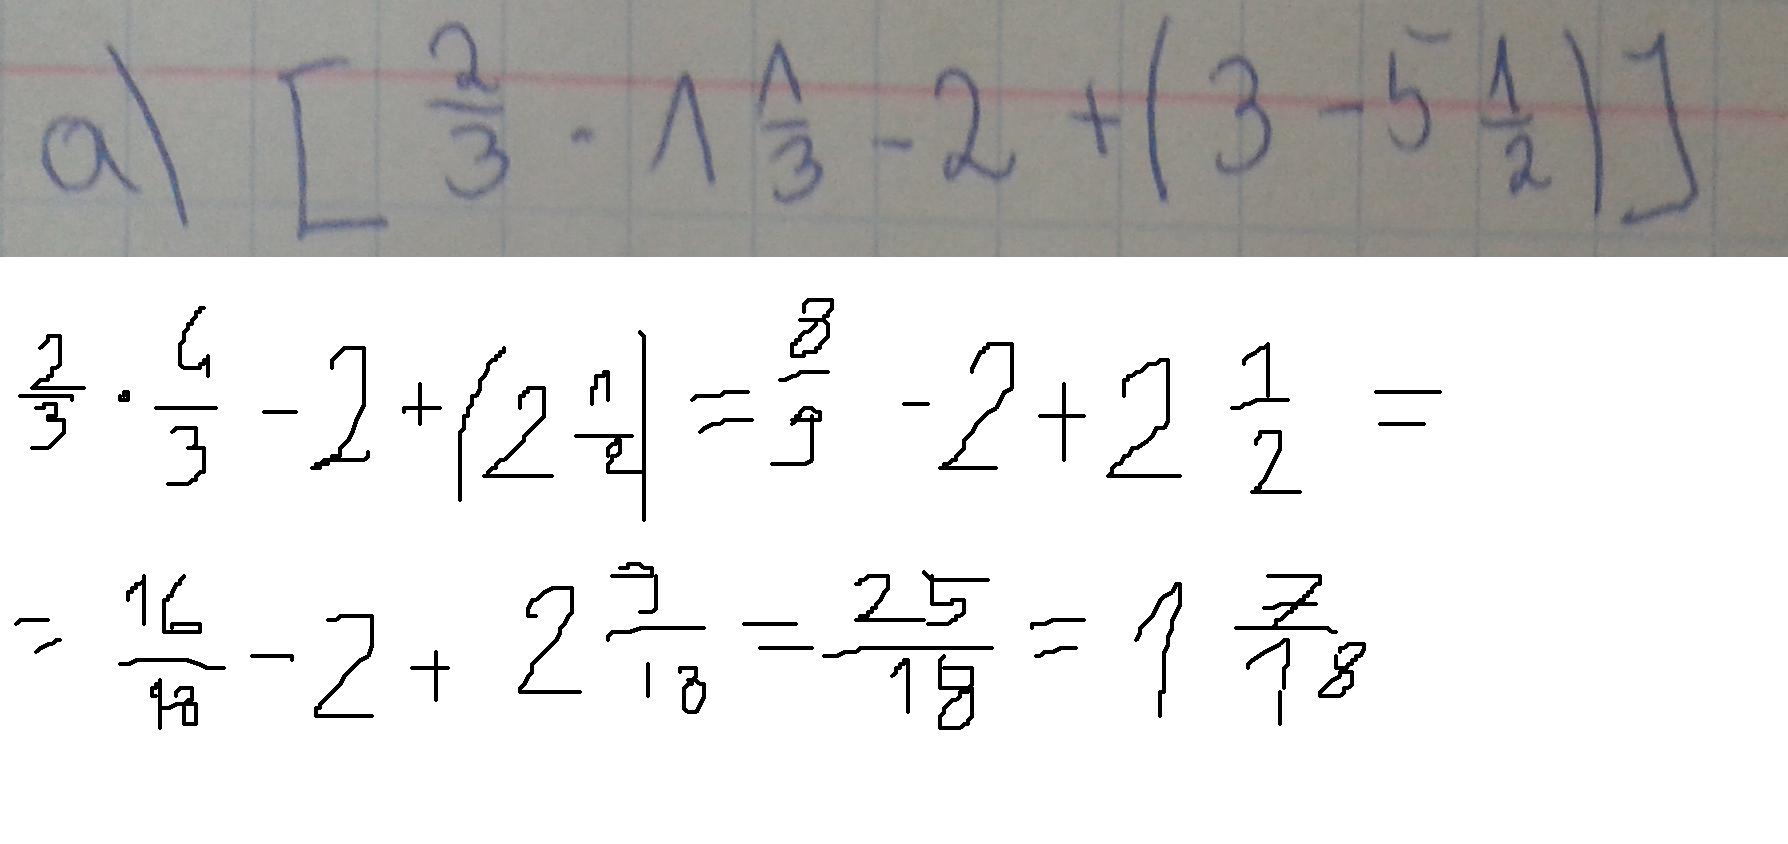 a) [ 2/3 · 1 1/3 - 2 + ( 3 - 5 1/2 ) ]
2/3 · 4/3 - 2 + ( 2 1/2 ) = 8/9 - 2 + 2 1/2 =
= 16/18 - 2 + 2 9/18 = 25/18 = 1 7/18